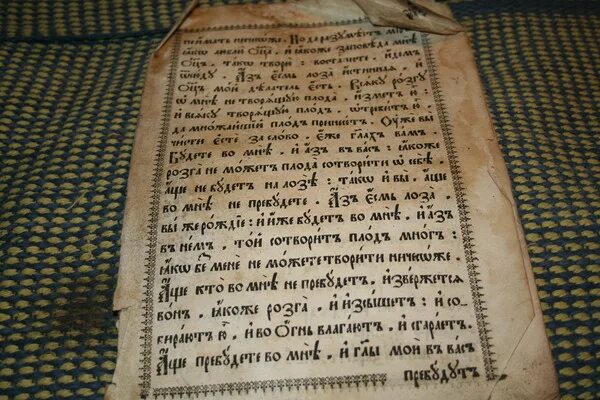 не имать ничесоже. Но да разумѣетъ мїръ
ꙗкѡ люблю Ѻ҃ца, и ꙗкоже заповѣда мнѣ
Ѻ҃цъ, такѡ творю: востаните, идемъ
ѿсюду. Азъ есмь лоза истинная, и
Ѻ҃цъ мой дѣлатель есть. Всяку розгу
ѡ мнѣ не творящую плода, измет ю:
и всяку творящую плодъ, ѡтребитъ ю,
да множайшїй плодъ принесетъ. Оуже вы
чисти есте за слово, еже гл҃ахъ вамъ.
Будете во мнѣ, и азъ въ васъ: ꙗкоже
розга не можетъ плода сотворити ѡ себѣ,
аще не будетъ на лозѣ: такѡ и вы, аще
во мнѣ не пребудете. Азъ есмь лоза,
вы же рождїе: и иже будетъ во мнѣ, и азъ
въ немъ, той сотворитъ плодъ многъ:
ꙗкѡ без мене не можете творити ничесѡже.
Аще кто во мнѣ не пребудетъ, извержется
вонъ, ꙗкоже розга, и изсышетъ: и со-
бираютъ ю, и во огнь влагаютъ, и сгараетъ.
Аще пребудете во мнѣ, и гл҃ы мои въ васъ
пребудутъ